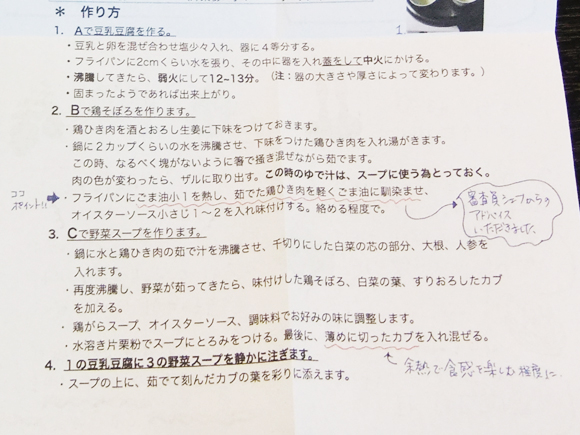 ＊ 作り方
1. Aで豆乳豆腐を作る。
1.
・豆乳と卵を混ぜ合わせ塩少々入れ、器に４等分する。
・フライパンに2cmくらい水を張り、その中に器を入れ蓋をして中火にかける。
・沸騰してきたら、弱火にして12~13分。（注：器の大きさや厚さによって変わります。）
・固まったようであれば出来上がり。
2. Bで鶏そぼろを作ります。
・鶏ひき肉を酒とおろし生姜に下味をつけておきます。
・鍋に２カップくらいの水を沸騰させ、下味をつけた鶏ひき肉を入れ湯がきます。
この時、なるべく塊がないように箸で掻き混ぜながら茹でます。
肉の色が変わったら、ザルに取り出す。この時のゆで汁は、スープに使う為とっておく。
ココ
ポイント!!
・フライパンにごま油小１を熱し、茹でた鶏ひき肉を軽くごま油に馴染ませ、
オイスターソース小さじ１〜２を入れ味付けする。絡める程度で。
審査員シェフからの
アドバイス
いただきました。
3. Cで野菜スープを作ります。
・鍋に水と鶏ひき肉の茹で汁を沸騰させ、千切りにした白菜の芯の部分、大根、人参を
入れます。
・再度沸騰し、野菜が茹ってきたら、味付けした鶏そぼろ、白菜の葉、すりおろしたカブ
を加える。
・鶏がらスープ、オイスターソース、調味料でお好みの味に調整します。
・水溶き片栗粉でスープにとろみをつける。最後に、薄めに切ったカブを入れ混ぜる。
余熱で食感を楽しむ程度に。
4. １の豆乳豆腐に３の野菜スープを静かに注ぎます。
・スープの上に、茹でて刻んだカブの葉を彩りに添えます。